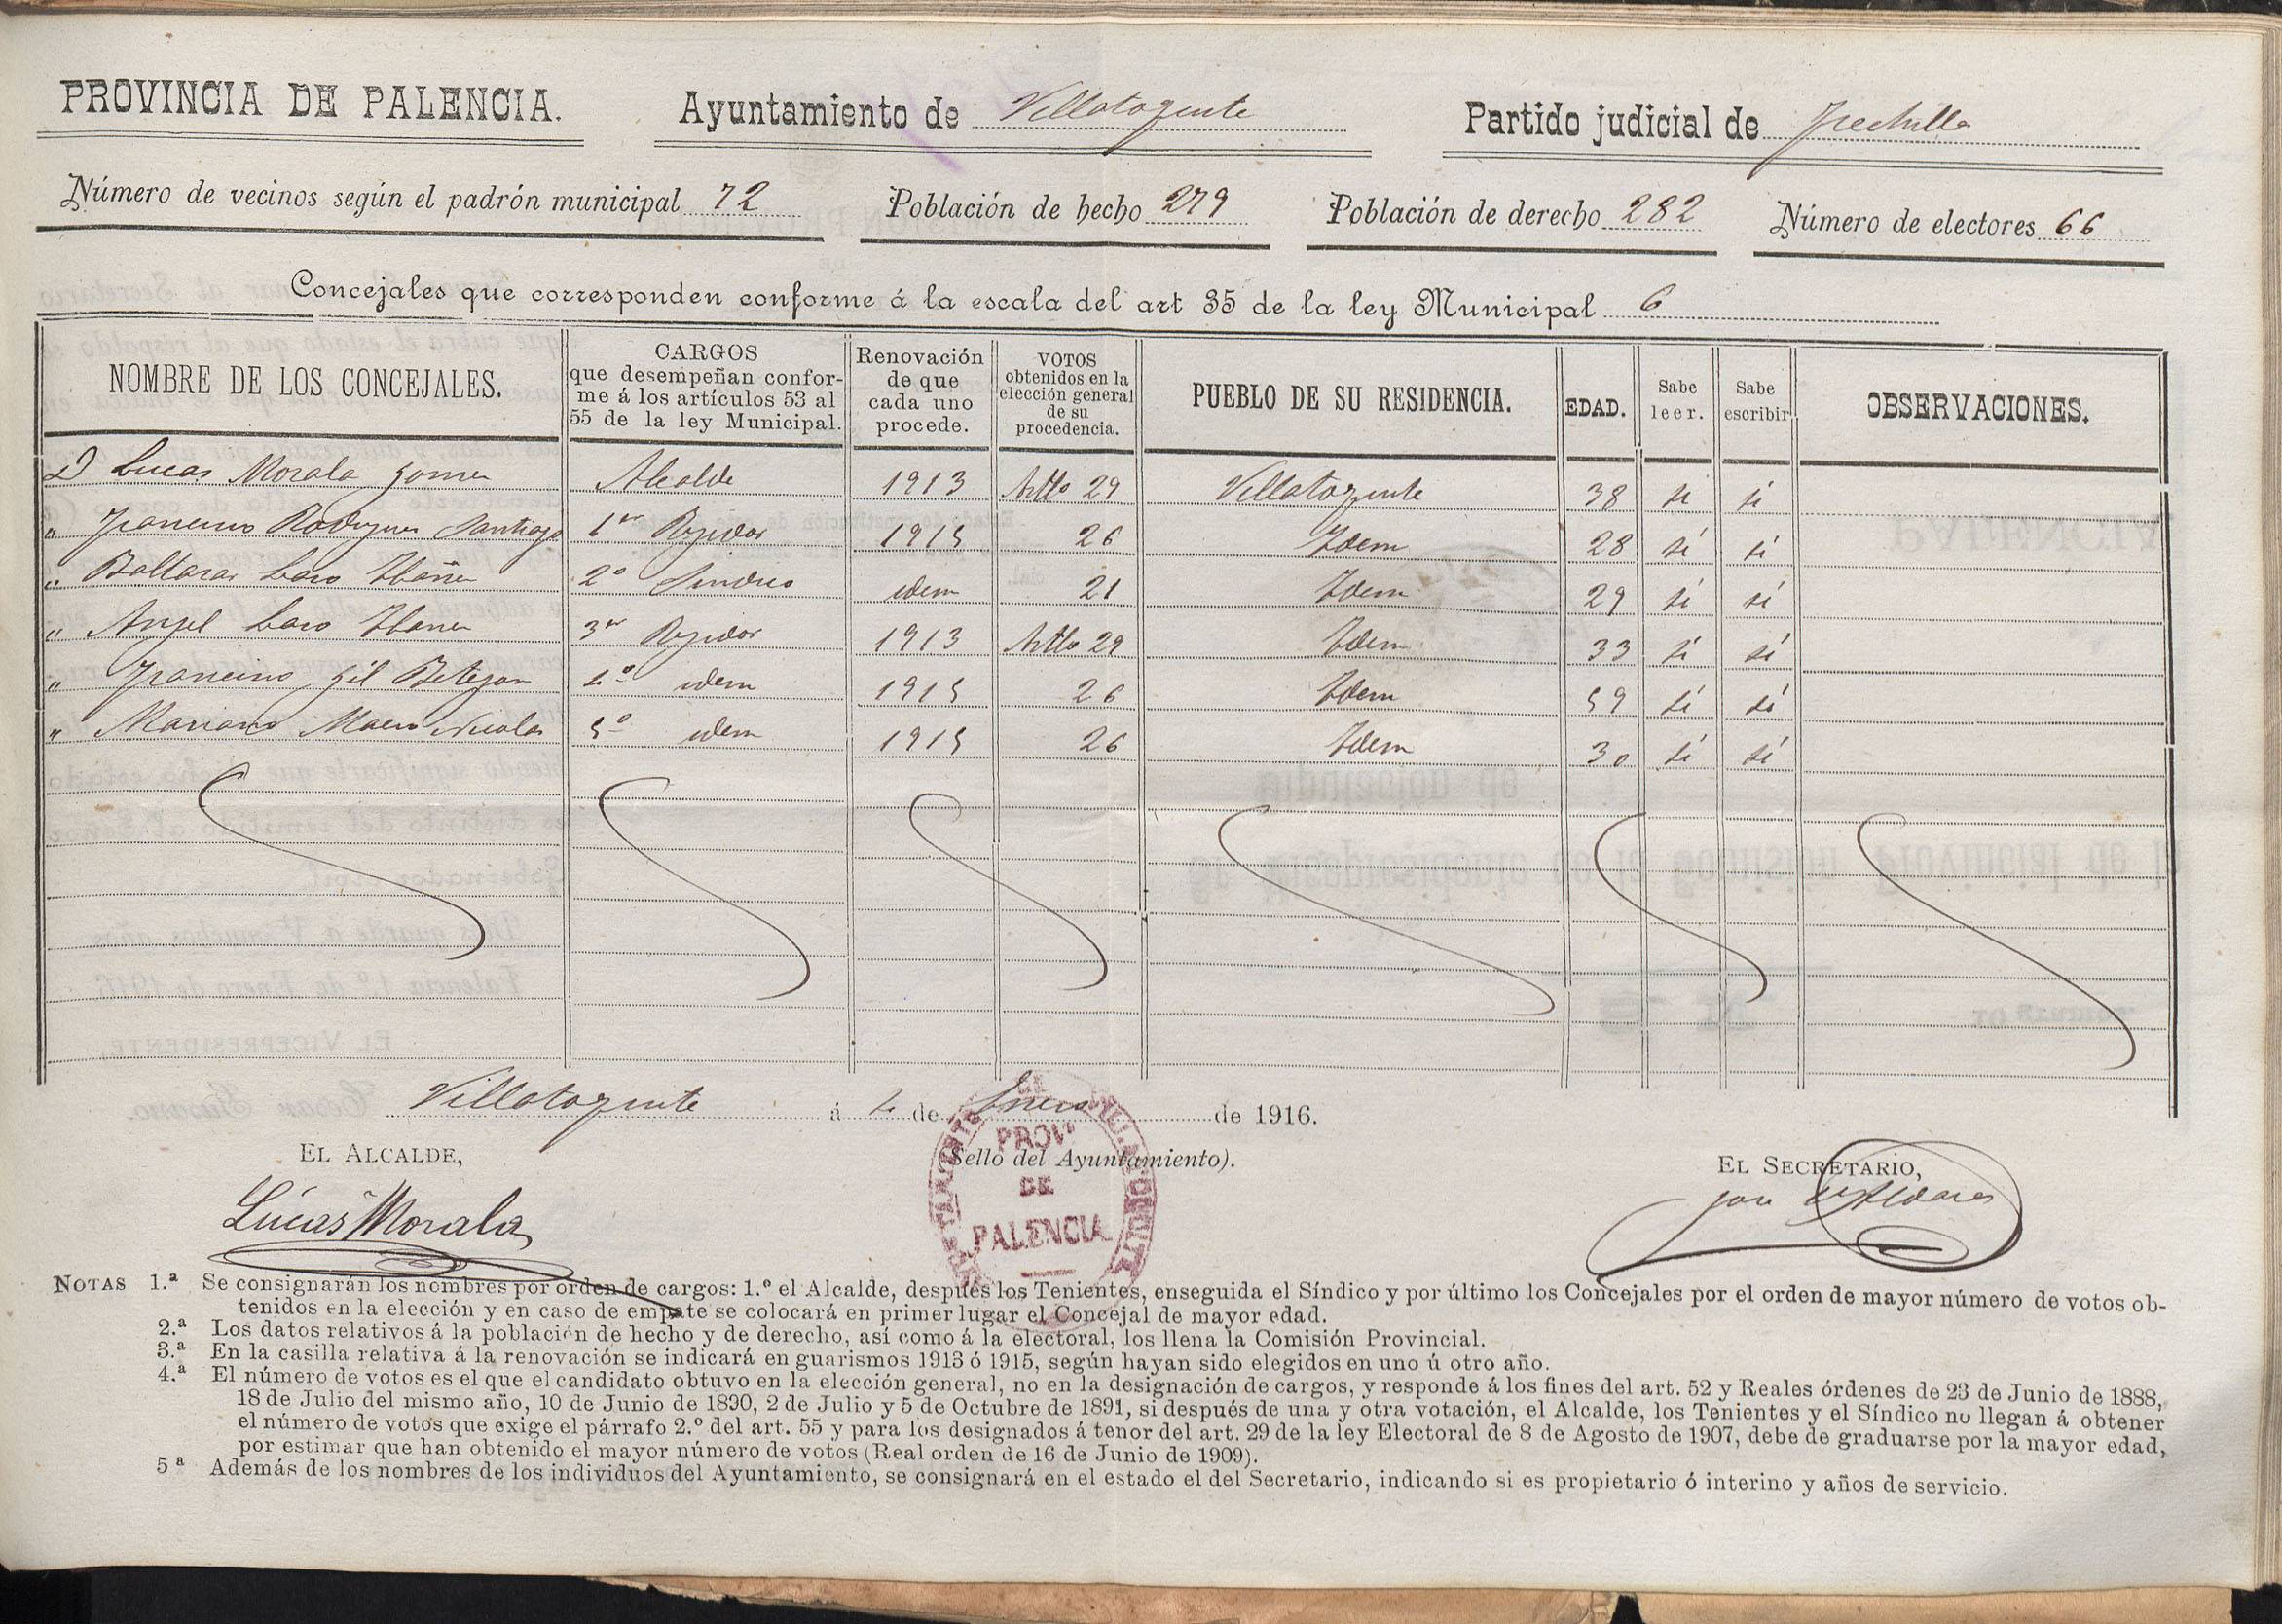 PROVINCIA DE PALENCIA. Ayuntamiento de Villatoquite Partido judicial de Frechilla
Número de vecinos según el padrón municipal 72 Población de hecho 279 Población de derecho 282 Número de electores 66
Concejales que corresponden conforme á la escala del art 35 de la ley Municipal 6
NOMBRE DE LOS CONCEJALES. CARGOS que desempeñan confor- me á los artículos 53 al 55 de la ley Municipal. Renovación de que cada uno procede. VOTOS obtenidos en la elección general de su procedencia. PUEBLO DE SU RESIDENCIA. EDAD. Sabe leer. Sabe escribir OBSERVACIONES.
D Lucas Morala Gomez Alcalde 1913 Artlo 29 Villatoquite 38 si si
" Francisco Rodriguez Santiago 1er Regidor 1915 26 Idem 28 si si
" Baltasar Laso Ibañez 2º Sindico idem 21 Idem 29 si si
" Angel Laso Ibañez 3er Regidor 1913 Artlo 29 Idem 33 si si
" Francisco Gil Betegon 4º idem 1915 26 Idem 59 si si
" Mariano Nicolas 5º idem 1915 26 Idem 30 si si
Villatoquite á 2 de Enero de 1916.
EL ALCALDE, (Sello del Ayuntamiento). EL SECRETARIO,
PROVª
DE
PALENCIA
Lucas Morala
NOTAS 1.ª Se consignarán los nombres por orden de cargos: 1.º el Alcalde, después los Tenientes, enseguida el Síndico y por último los Concejales por el orden de mayor número de votos ob-
tenidos en la elección y en caso de empate se colocará en primer lugar el Concejal de mayor edad.
2.ª Los datos relativos á la población de hecho y de derecho, así como á la electoral, los llena la Comisión Provincial.
3.ª En la casilla relativa á la renovación se indicará en guarismos 1913 ó 1915, según hayan sido elegidos en uno ú otro año.
4.ª El número de votos es el que el candidato obtuvo en la elección general, no en la designación de cargos, y responde á los fines del art. 52 y Reales órdenes de 23 de Junio de 1888,
18 de Julio del mismo año, 10 de Junio de 1890, 2 de Julio y 5 de Octubre de 1891, si después de una y otra votación, el Alcalde, los Tenientes y el Síndico no llegan á obtener
el número de votos que exige el párrafo 2.º del art. 55 y para los designados á tenor del art. 29 de la ley Electoral de 8 de Agosto de 1907, debe de graduarse por la mayor edad,
por estimar que han obtenido el mayor número de votos (Real orden de 16 de Junio de 1909).
5ª Además de los nombres de los individuos del Ayuntamiento, se consignará en el estado el del Secretario, indicando si es propietario ó interino y años de servicio.